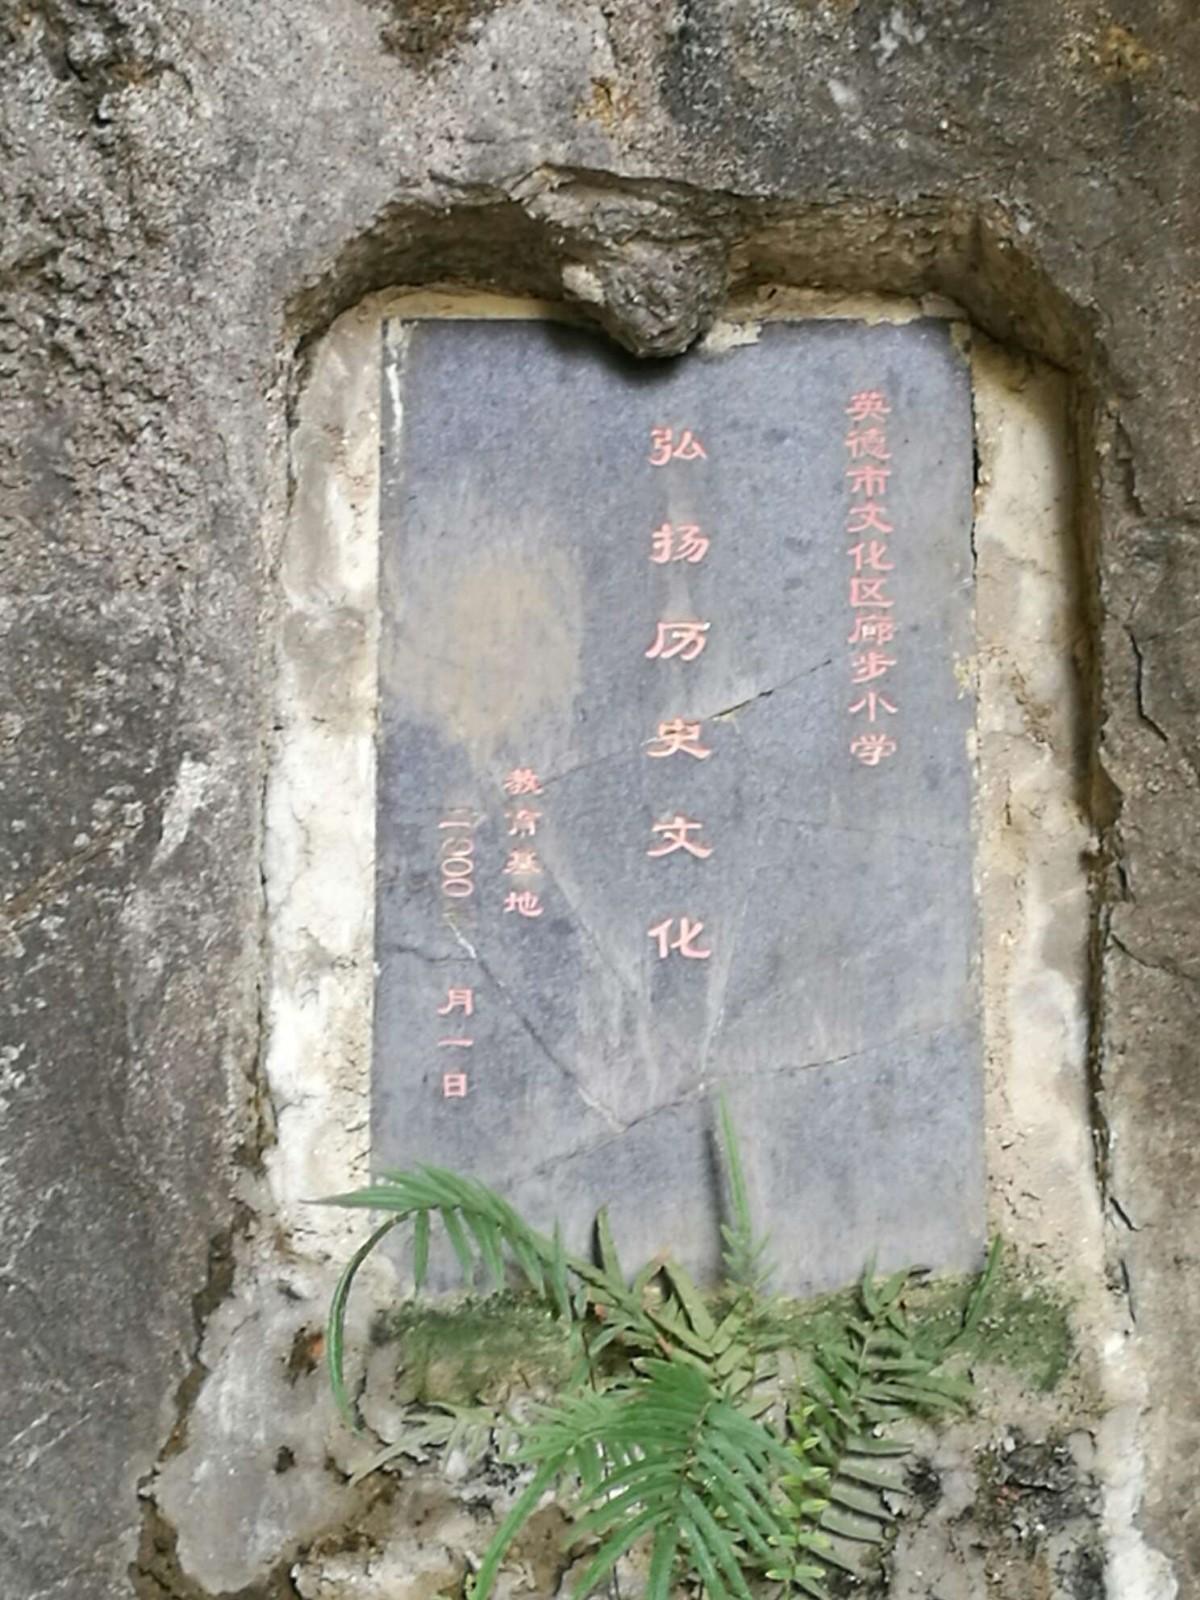 英德市文化区廊步小学
弘扬历史文化
教育基地
二〇〇 月一日